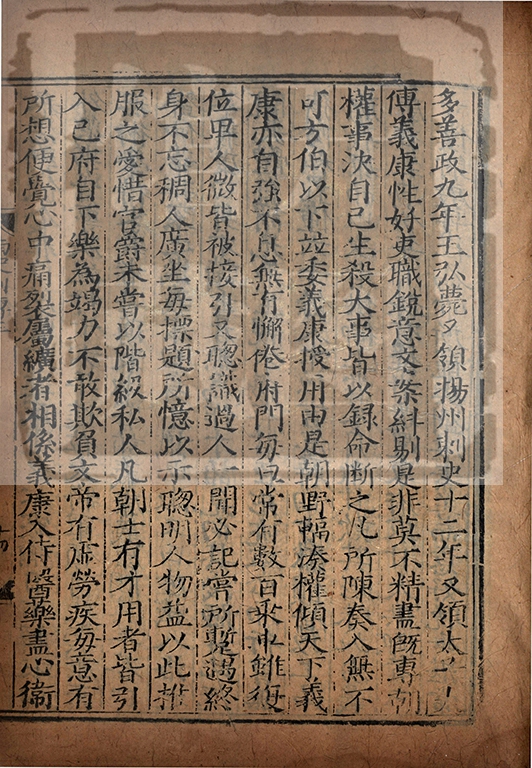 多善政九年王弘薨又領揚州刺史十二年又領太子太
傅義康性好吏職銳意文案糾剔是非莫不精盡旣專朝
權事決自己生殺大事皆以録命斷之凡所陳奏入無不
可方伯以下並委義康授用由是朝野輻湊權傾天下義
康亦自強不息無有懈倦府門每旦常有數百乘車雖復
位卑人微皆被接引又聰識過人一聞必記嘗所暫遇終
身不忘稠人廣坐每標題所憶以示聰明人物益以此推
服之愛惜官爵未嘗以階級私人凡朝士有才用者皆引
入己府自下樂為竭力不敢欺負文帝有虛勞疾每意有
所想便覺心中痛裂屬纊者相係義康入侍醫藥盡心衞